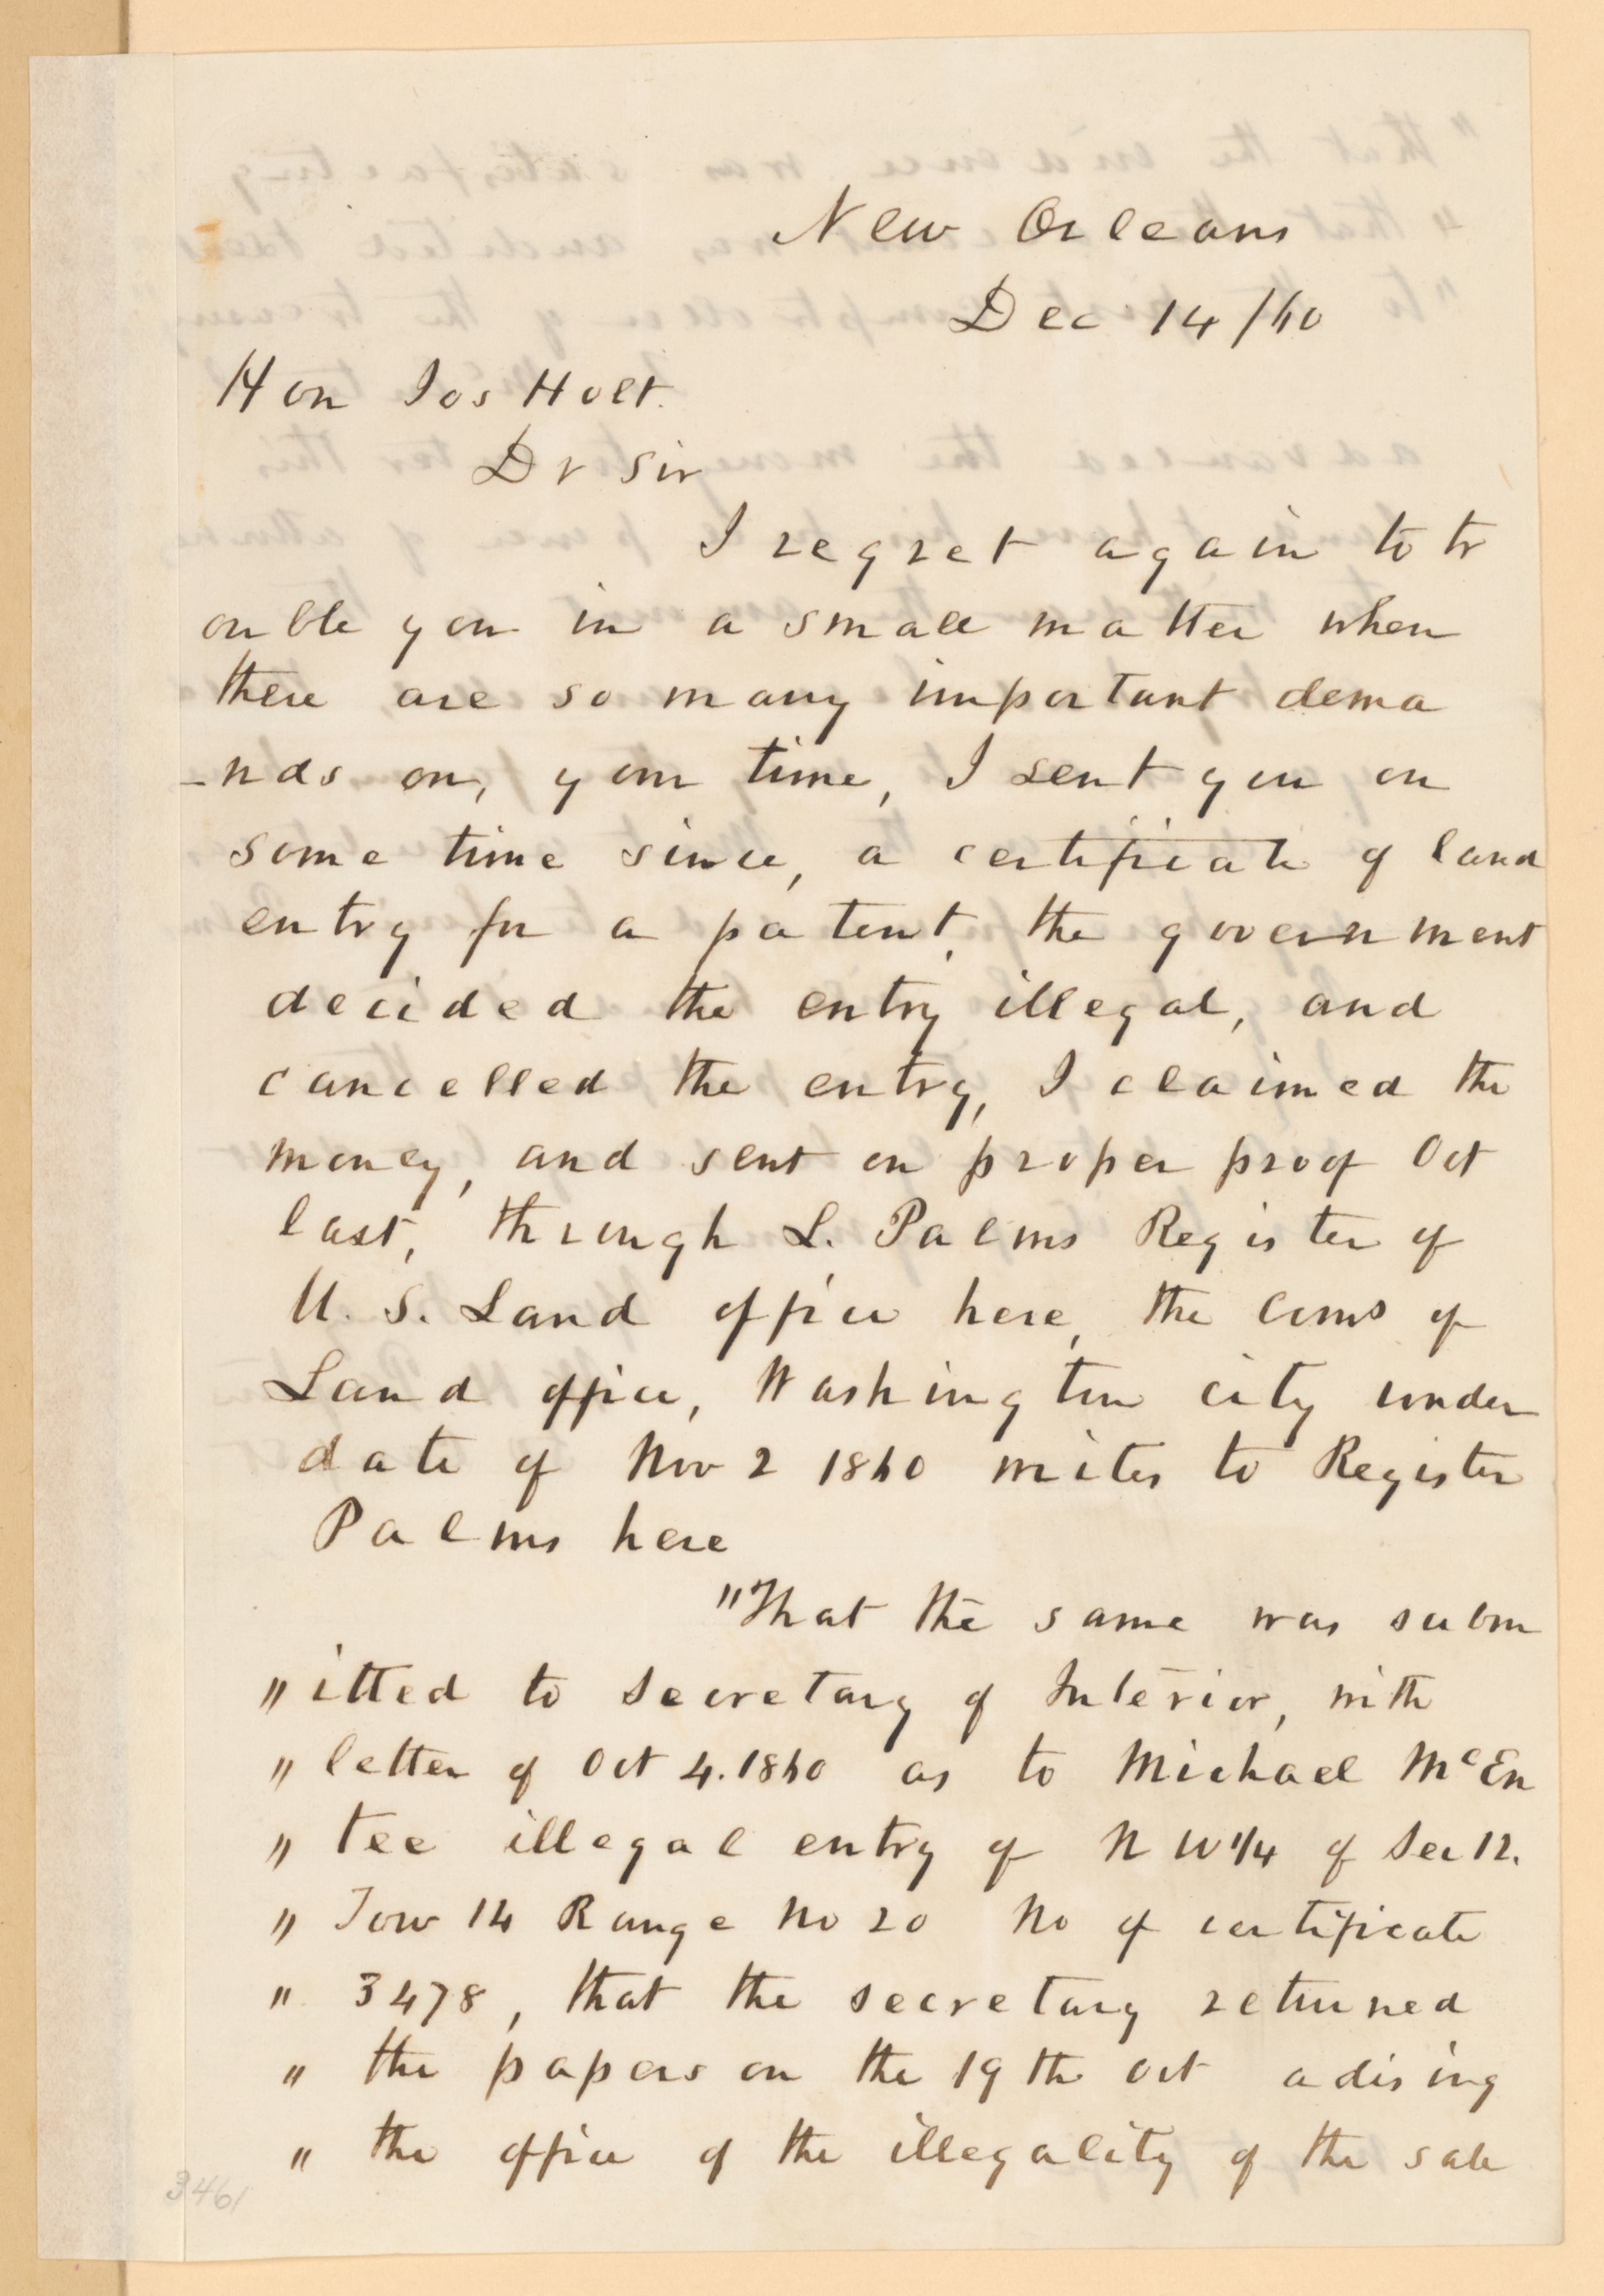 New Orleans
Dec 14/60
Hon Jos Holt.
Dr Sir
I regret again to tr
ouble you in a small matter when
there are so many important dema
-nds on, your time, I sent you on
some time since, a certificate of land
entry for a patent, the government
decided the entry illegal, and
cancelled the entry, I claimed the
money, and sent on proper proof Oct
last, through L. Palms Register of
U. S. Land office here, the Coms of
Land office, Washington city under
date of Nov 2 1860 writes to Register
Palms here
"That the same was subm
" itted to Secretary of Interior, with
" letter of Oct 4. 1860 as to Michael McEn
" tee illegal entry of N W 1/4 of Sec 12.
" Tow 14 Range No 20 No of certificate
" 3478, that the secretary returned
" the papers on the 19th Oct adising
" the office of the illegality of the sale
3461